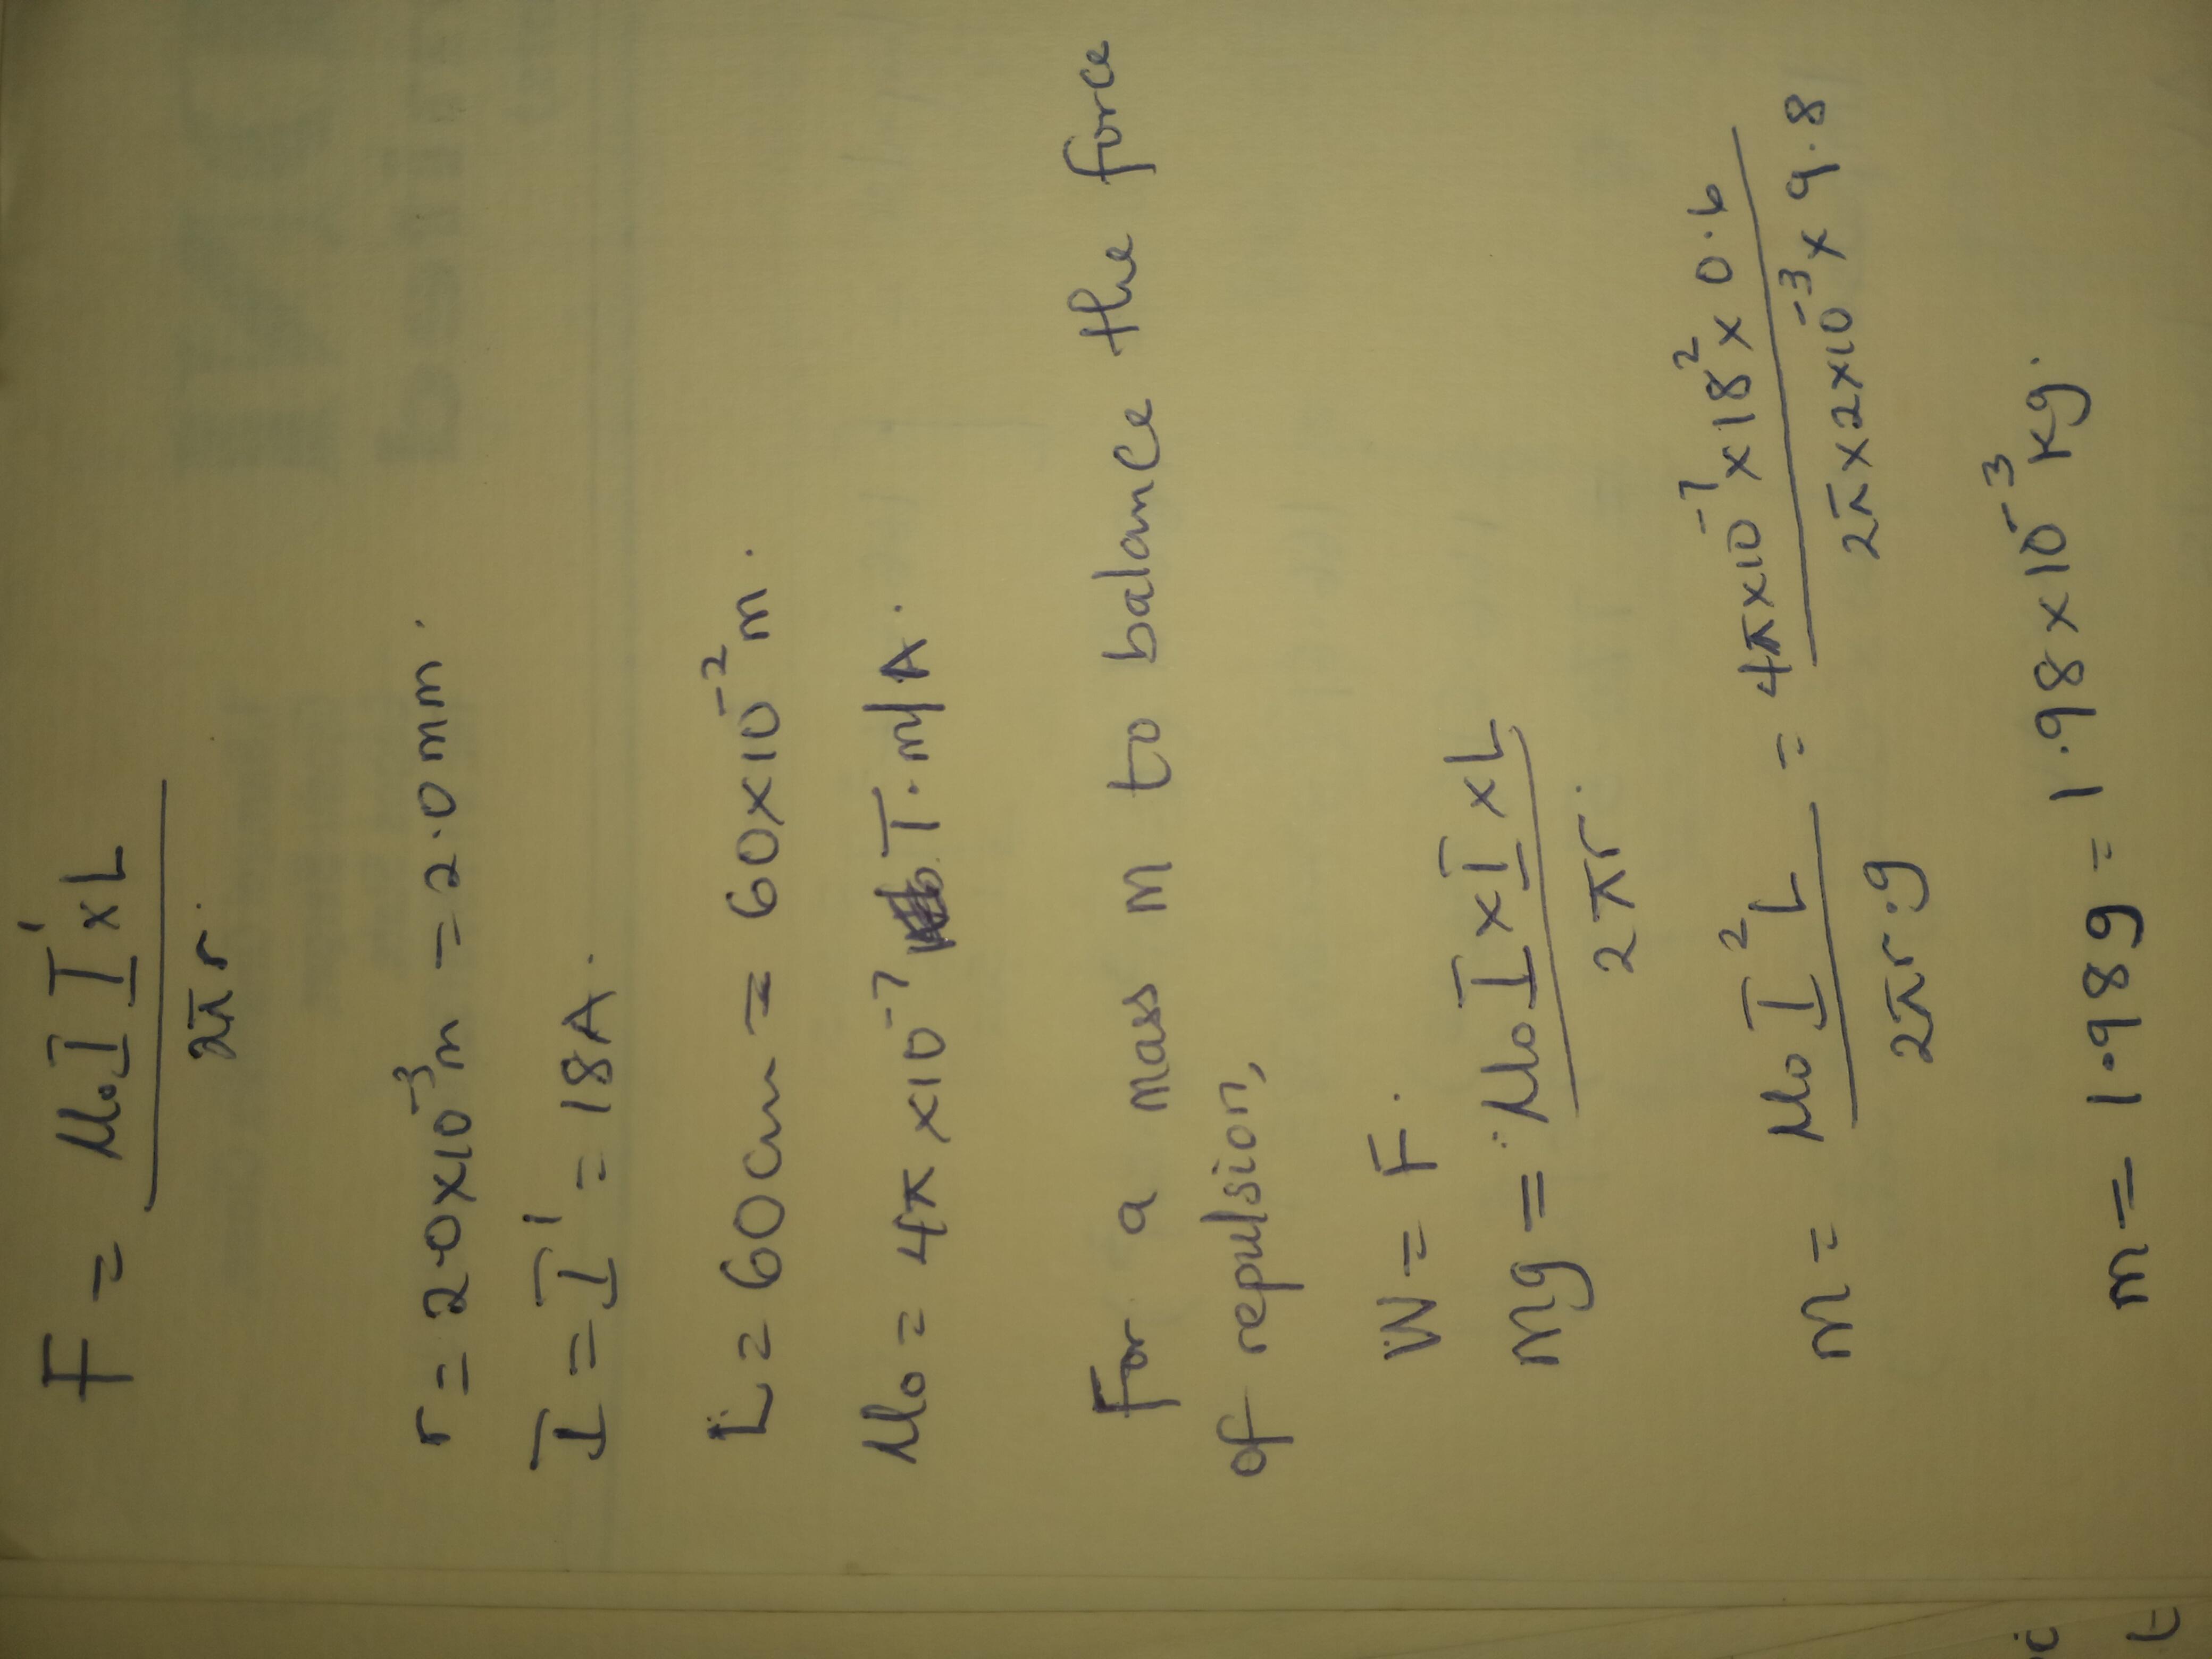 F = μ₀ I I' x L
2π r
r = 2.0x10⁻³m = 2.0mm.
I = I' = 18A.
L = 60cm = 60x10⁻² m.
μ₀ = 4π x10⁻⁷ T.m/A.
For a mass m to balance the force
of repulsion,
W = F.
mg = μ₀ I x I x L
2πr.
m = μ₀ I² L = 4πx10⁻⁷x18²x 0.6
2πr.g 2πx2x10⁻³x 9.8
m = 1.98g = 1.98x10⁻³ kg.